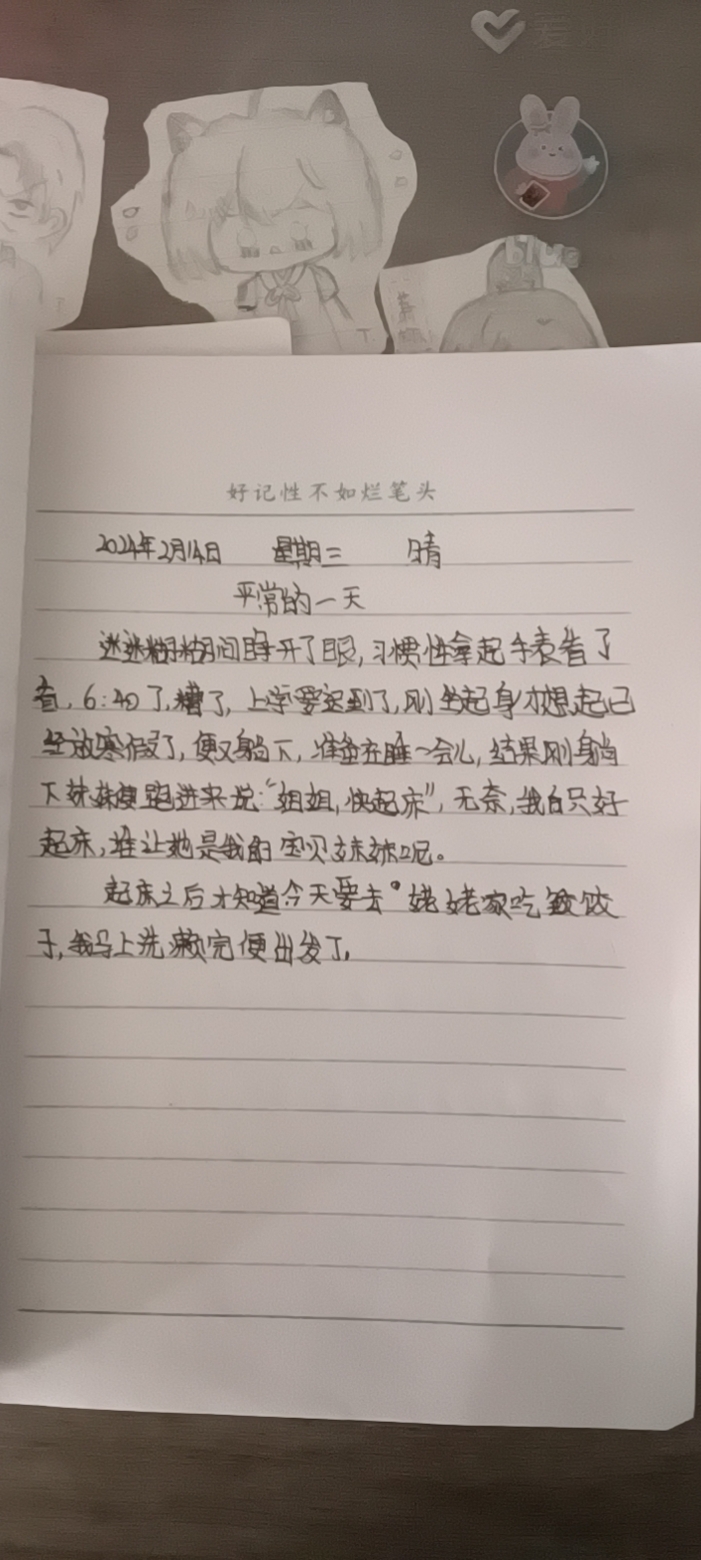 爱
blue
好记性不如烂笔头
2024年2月14日 星期三 晴
平常的一天
迷迷糊糊间睁开了眼,习惯性拿起手表看了
看,6:40了,糟了,上学要迟到了,刚坐起身才想起已
经放寒假了,便又躺下,准备在睡一会儿,结果刚躺
下妹妹便跑进来说:“姐姐,快起床”,无奈,我自只好
起床,谁让她是我的宝贝妹妹呢。
起床之后才知道今天要去姥姥家吃饺
子,我马上洗漱完便出发了,